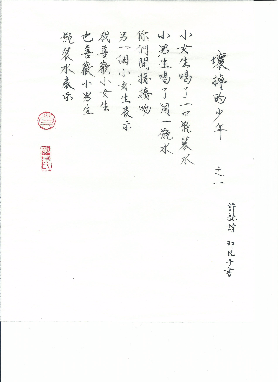 壞掉的少年 之一
小女生喝了一口瓶裝水
小男生喝了同一瓶水
你們間接接吻
另一個小女生表示
我喜歡小女生
也喜歡小男生
瓶裝水表示